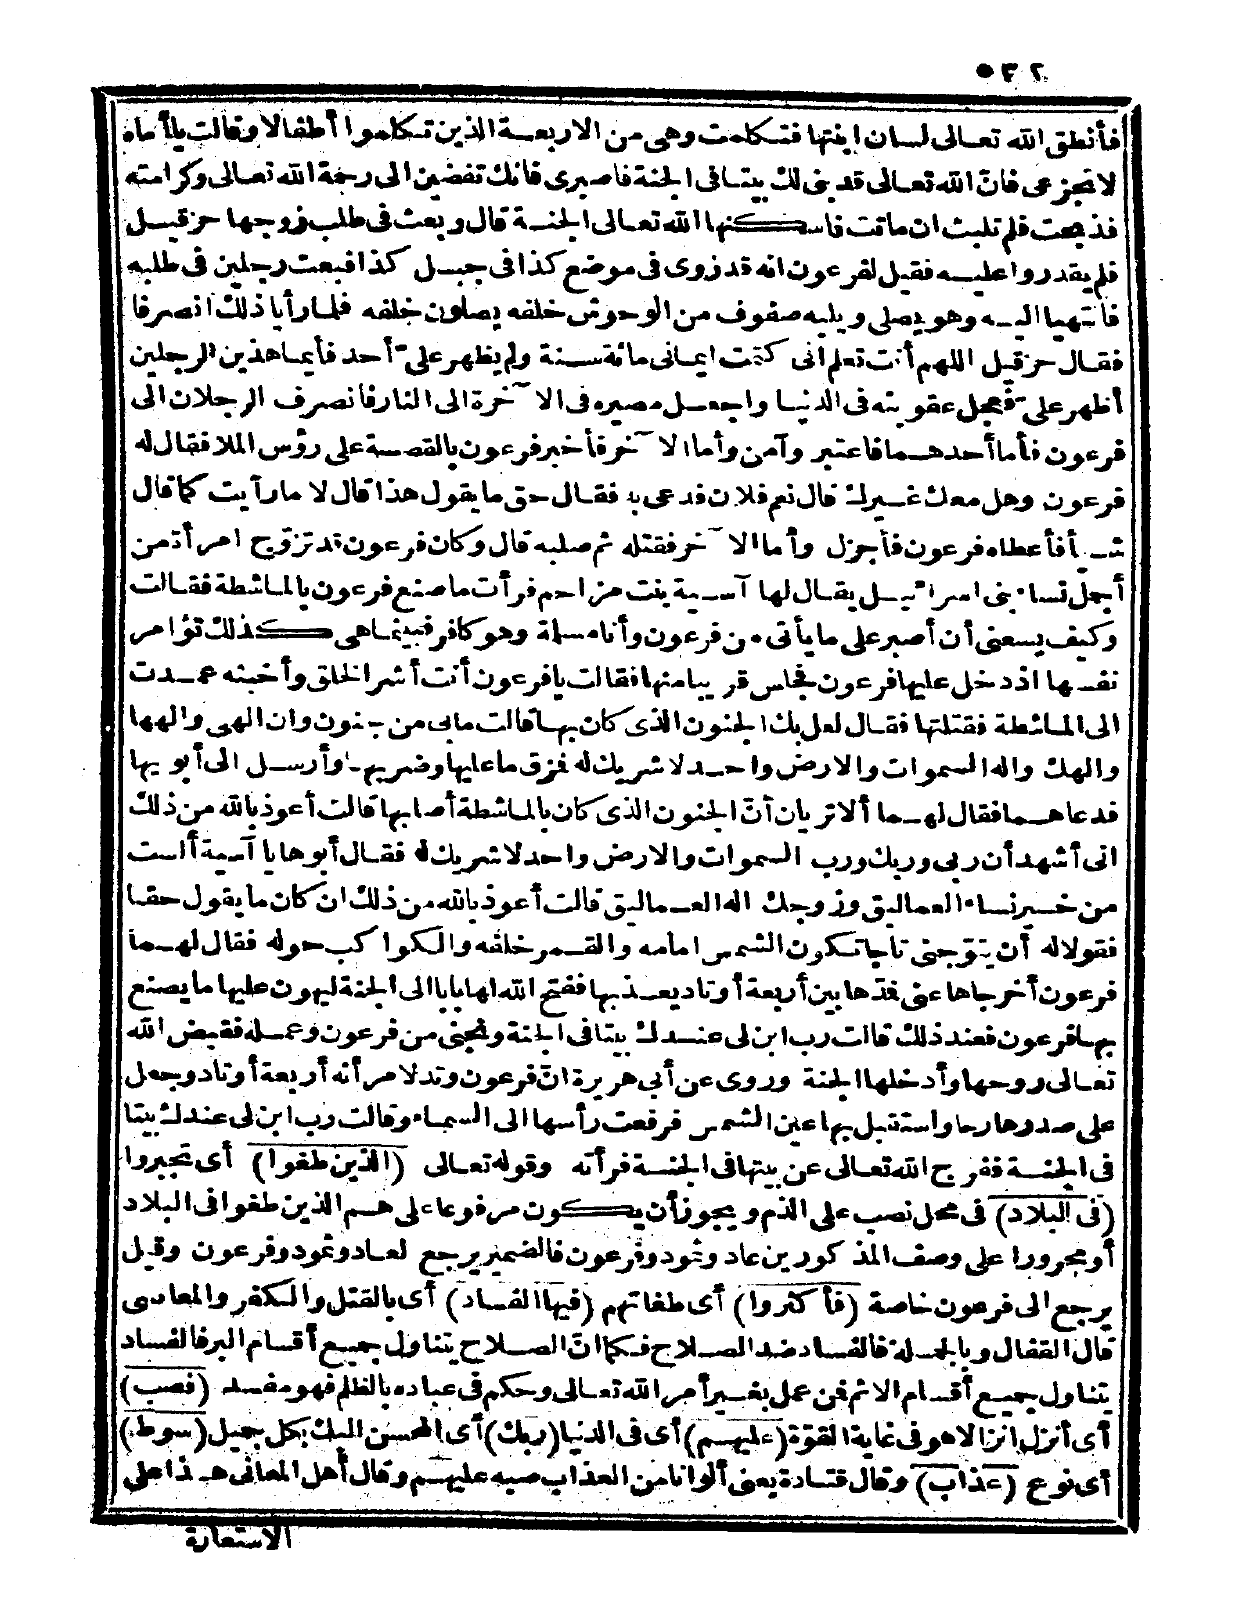 ٥٣٢
فأنطق الله تعالى لسان ابنتها فتكلمت وهى من الاربعة الذين تكلموا أطفالا وقالت ياأماه
لا تجزعى فانّ الله تعالى قد بنى لك بيتا فى الجنة فاصبرى فانك تفضين الى رحمة الله تعالى وكرامته
فذبحت فلم تلبث ان ماتت فاسكنها الله تعالى الجنة قال وبعث فى طلب زوجها حزقيل
فلم يقدروا عليه فقيل لفرعون انه قد زوى فى موضع كذا فى جبل كذا فبعث رجلين فى طلبه
فانتهيا اليه وهو يصلى ويليه صفوف من الوحوش خلفه يصلون خلفه فلما رأيا ذلك انصرفا
فقال حزقيل اللهم أنت تعلم انى كتمت ايمانى مائة سنة ولم يظهر علىّ أحد فأيما هذين الرجلين
أظهر علىّ فعجل عقوبته فى الدنيا واجعل مصيره فى الآخرة الى النار فانصرف الرجلان الى
فرعون فأما أحدهما فاعتبر وآمن وأما الآخر فأخبر فرعون بالقصة على رؤس الملا فقال له
فرعون وهل معك غيرك قال نعم فلان فدعى به فقال حق ما يقول هذا قال لا ما رأيت كما قال
شيأ فأعطاه فرعون فأجزل وأما الآخر فقتله ثم صلبه قال وكان فرعون قد تزوج امرأة من
أجمل نساء بنى اسرائيل يقال لها آسية بنت مزاحم فرأت ما صنع فرعون بالماشطة فقالت
وكيف يسعنى أن أصبر على ما يأتى من فرعون وأنا مسلمة وهو كافر فبينما هى كذلك تؤامر
نفسها اذ دخل عليها فرعون فجلس قريبا منها فقالت يا فرعون أنت أشر الخلق وأخبثه عمدت
الى الماشطة فقتلتها فقال لعل بك الجنون الذى كان بها قالت مابى من جنون وان الهى والهها
والهك واله السموات والارض واحد لا شريك له فمزق ما عليها وضربها وأرسل الى أبويها
فدعاهما فقال لهما ألا تريان أنّ الجنون الذى كان بالماشطة أصابها قالت أعوذ بالله من ذلك
انى أشهد أن ربى وربك ورب السموات والارض واحد لا شريك له فقال أبوها يا آسية ألست
من خير نساء العماليق وزوجك اله العماليق قالت أعوذ بالله من ذلك ان كان ما يقول حقا
فقولا له أن يتوّجنى تاجا تكون الشمس امامه والقمر خلفه والكواكب حوله فقال لهما
فرعون أخرجاها عنى فمدّها بين أربعة أوتاد يعذبها ففتح الله لها بابا الى الجنة ليهون عليها ما يصنع
بها فرعون فعند ذلك قالت رب ابن لى عندك بيتا فى الجنة ونجنى من فرعون وعمله فقبض الله
تعالى روحها وأدخلها الجنة وروى عن أبى هريرة انّ فرعون وتد لامرأته أربعة أوتاد وجعل
على صدرها رحا واستقبل بها عين الشمس فرفعت رأسها الى السماء وقالت رب ابن لى عندك بيتا
فى الجنة ففرج الله تعالى عن بيتها فى الجنة فرأته وقوله تعالى (الذين طغوا) أى تجبروا
(فى البلاد) فى محل نصب على الذم ويجوز أن يكون مرفوعا على هم الذين طغوا فى البلاد
أو مجرورا على وصف المذكورين عاد وثمود وفرعون فالضمير يرجع لعاد وثمود وفرعون وقيل
يرجع الى فرعون خاصة (فأكثروا) أى طغاتهم (فيها الفساد) أى بالقتل والكفر والمعاصى
قال القفال وبالجملة فالفساد ضد الصلاح فكما انّ الصلاح يتناول جميع أقسام البر فالفساد
يتناول جميع أقسام الاثم فمن عمل بغير أمر الله تعالى وحكم فى عباده بالظلم فهو مفسد (فصب)
أى أنزل انزالا هو فى غاية القوّة (عليهم) أى فى الدنيا (ربك) أى المحسن اليك بكل جميل (سوط)
أى نوع (عذاب) وقال قتادة يعنى ألوانا من العذاب صبه عليهم وقال أهل المعانى هذا على
الاستعارة